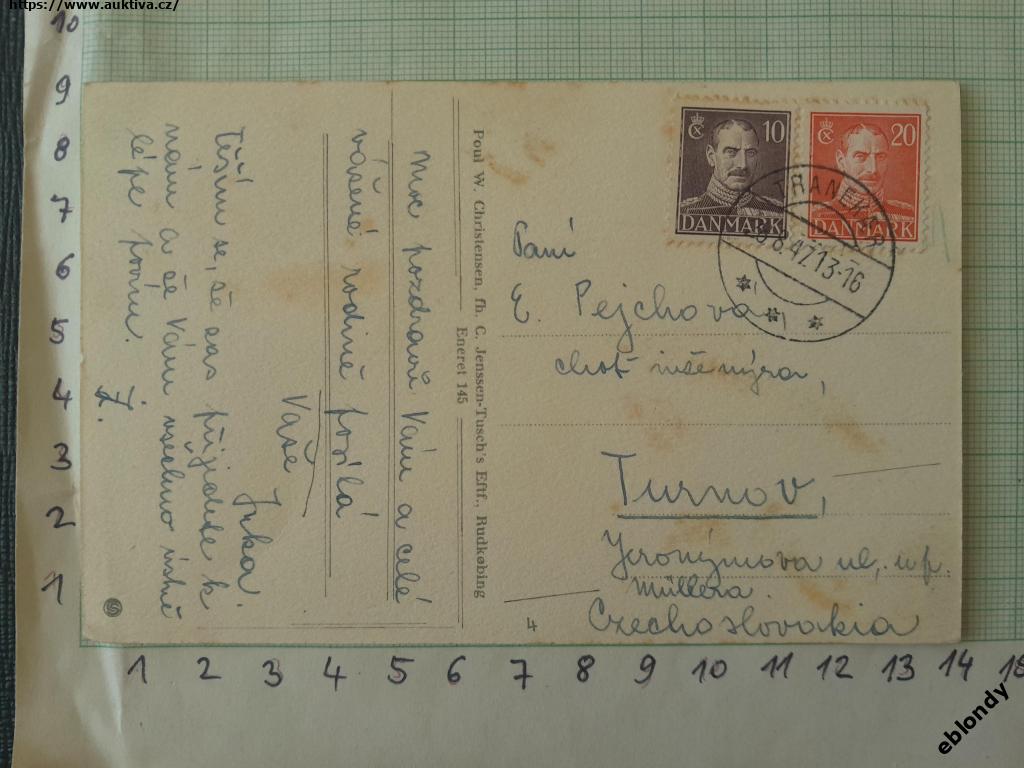 https://www.auktiva.cz/
10
9
8
7
6
5
4
3
2
1
10
DANMARK
20
DANMARK
TRANEKÆR
8.47.13-16
Moc pozdravů Vám a celé
vážené rodině posílá
Vaše
Jirka.
Těším se, že zas přijedete k
nám a že Vám všechno
lépe povím.
J.
Poul W. Christensen, fh. C. Jenssen-Tusch's Eftf., Rudkøbing
Eneret 145
Paní
E. Pejchova
choť inženýra,
Turnov,
Jeronýmova ul, u p.
Müllera.
Czechoslovakia
4
1 2 3 4 5 6 7 8 9 10 11 12 13 14 15
eblondy